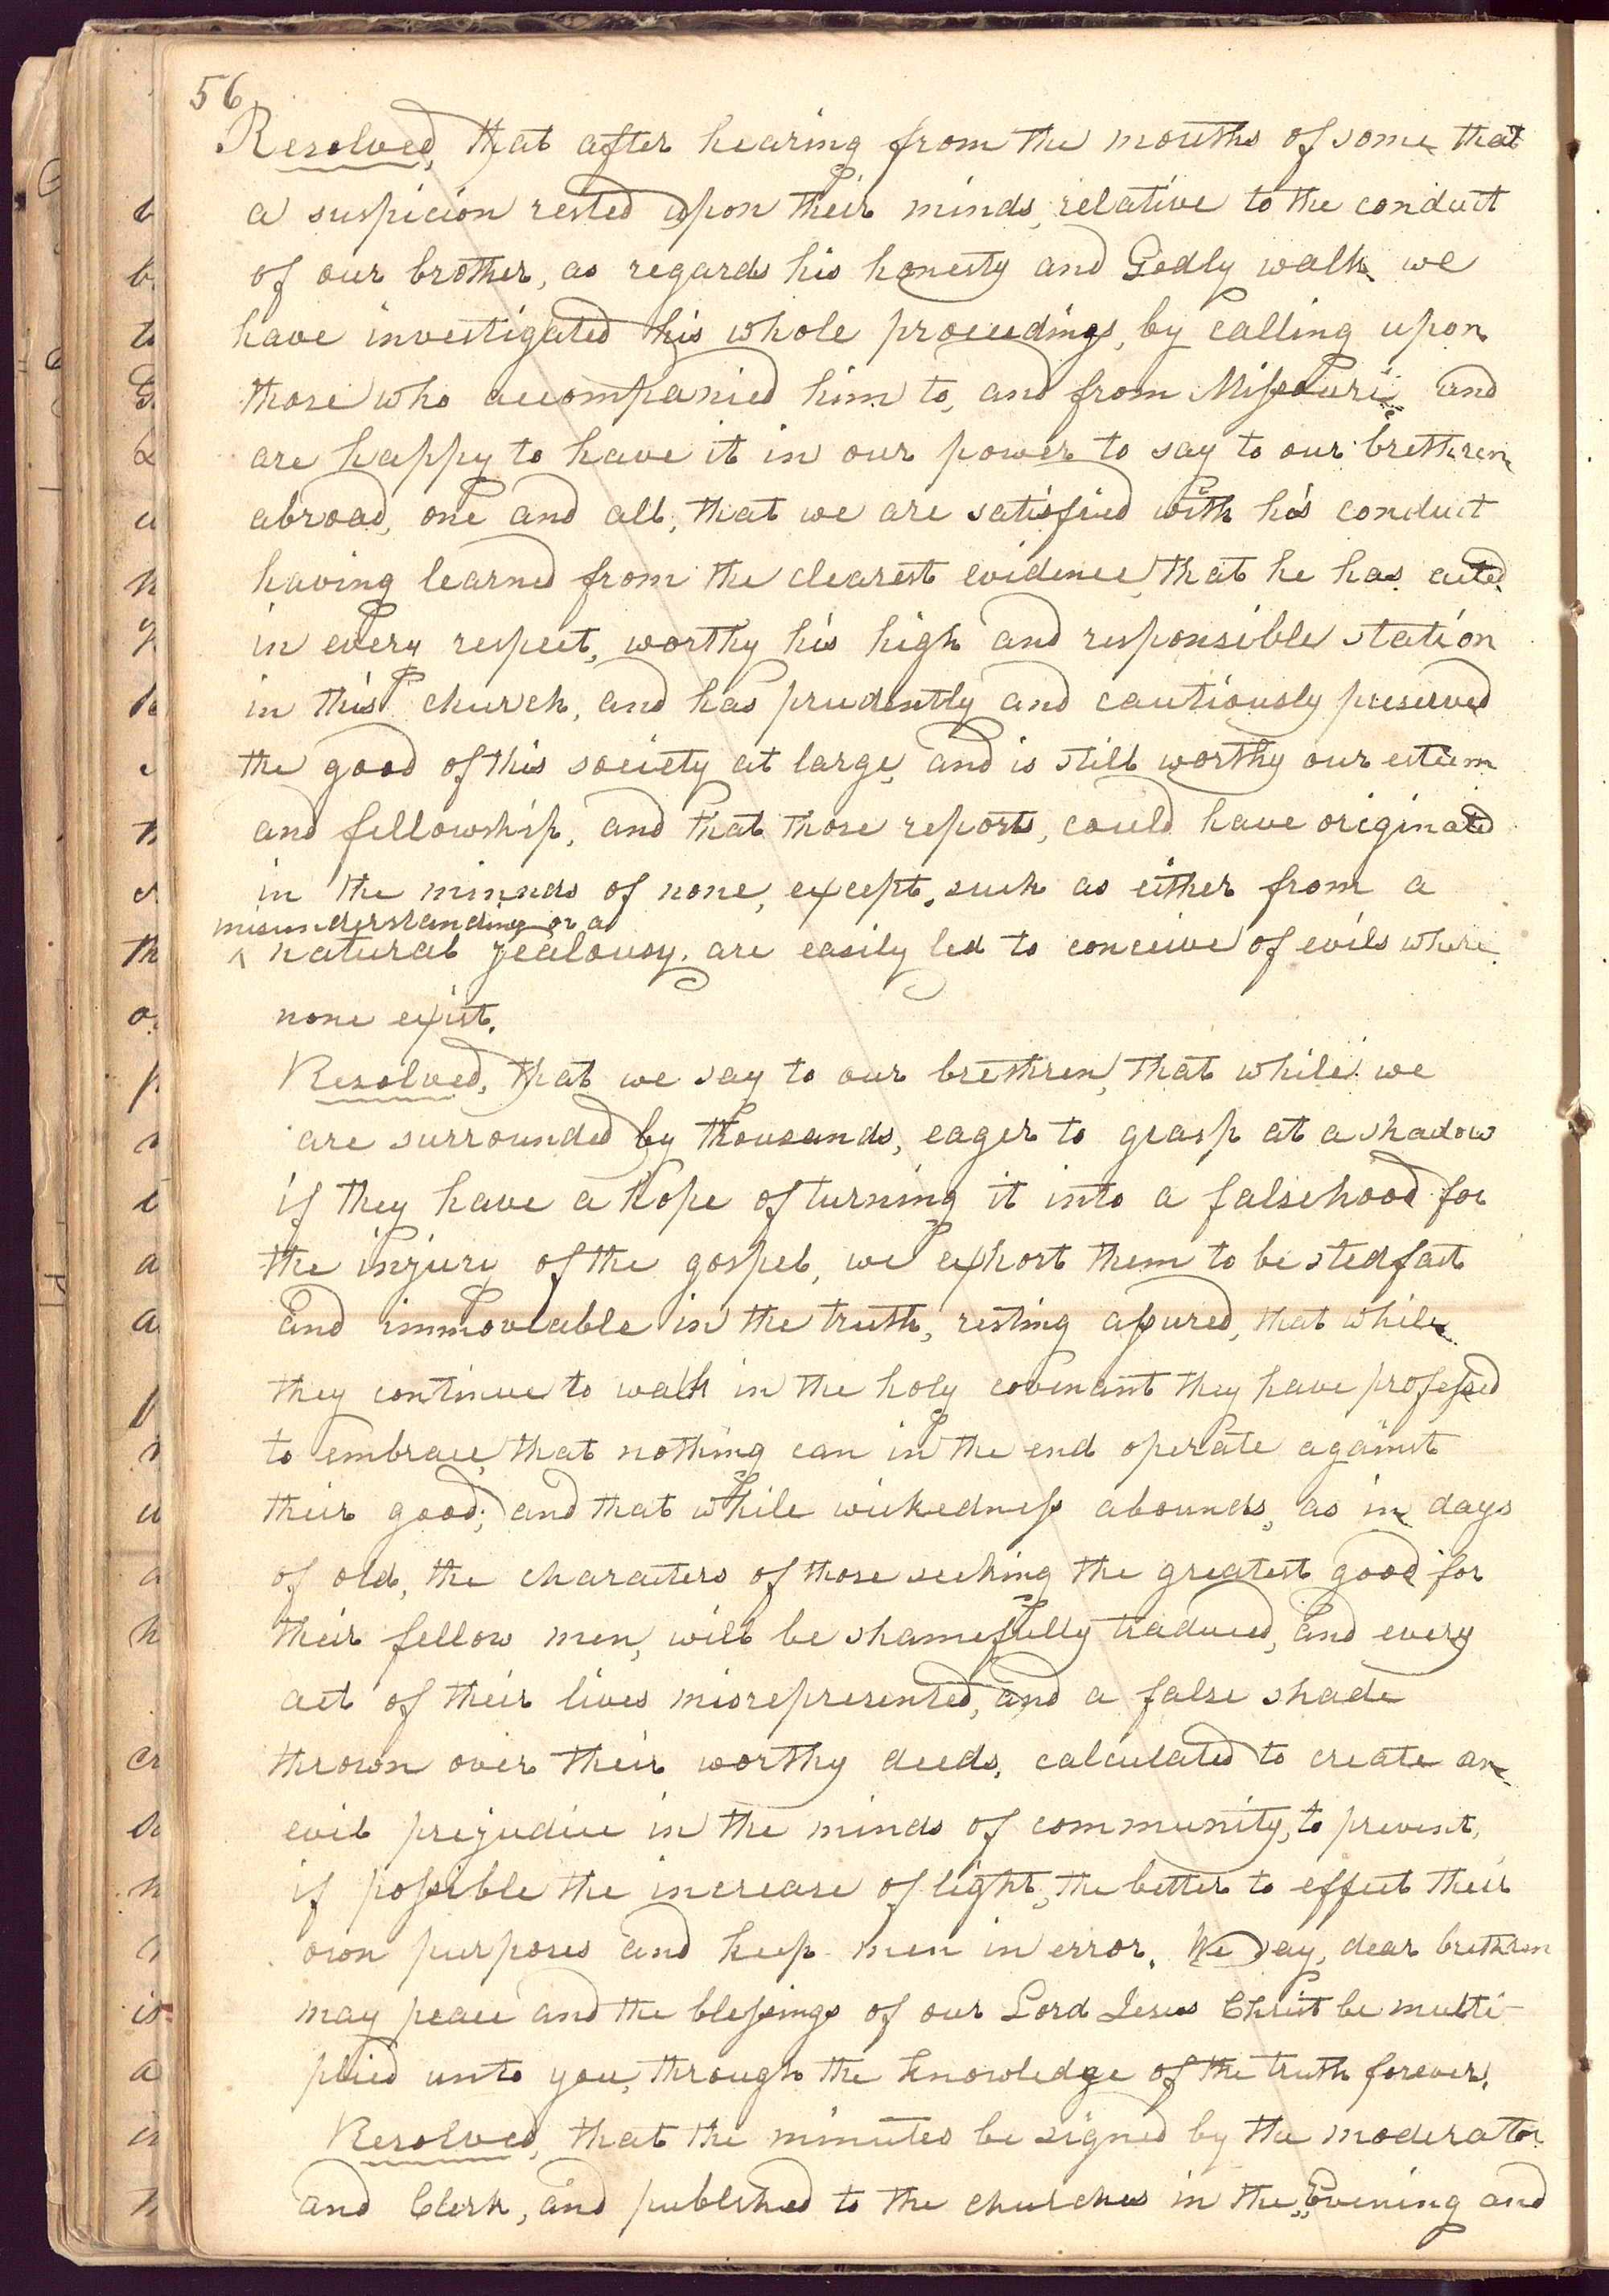 56
Resolved, that after hearing from the mouths of some that
a suspicion rested upon their minds, relative to the conduct
of our brother, as regards his honesty and Godly walk we
have investigated his whole proceedings, by calling upon
those who accompanied him to, and from Missouri, and
are happy to have it in our power to say to our brethren
abroad, one and all, that we are satisfied with his conduct
having learned from the clearest evidence, that he has acted
in every respect, worthy his high and responsible station
in this church, and has prudently and cautiously preserved
the good of this society at large, and is still worthy our esteem
and fellowship, and that those reports, could have originated
in the minnds of none, except, such as either from a
misunderstanding or a
^ natural jealousy, are easily led to conceive of evils where
none exist.
Resolved, that we say to our brethren, that while we
are surrounded by thousands, eager to grasp at a shadow
if they have a hope of turning it into a falsehood for
the injury of the gospel, we exhort them to be stedfast
and immoveable in the truth, resting assured, that while
they continue to walk in the holy covenant they have professed
to embrace, that nothing can in the end operate against
their good; and that while wickedness abounds, as in days
of old, the characters of those seeking the greatest good for
their fellow men, will be shamefully traduced, and every
act of their lives misrepresented, and a false shade
thrown over their worthy deeds, calculated to create an
evil prejudice in the minds of community, to prevent,
if possible the increase of light, the better to effect their
own purposes and keep men in error. We say, dear brethren
may peace and the blessings of our Lord Jesus Christ be multi-
plied unto you, through the knowledge of the truth forever.
Resolved, that the minutes be signed by the moderator
and Clerk, and published to the churches in the „Evening and